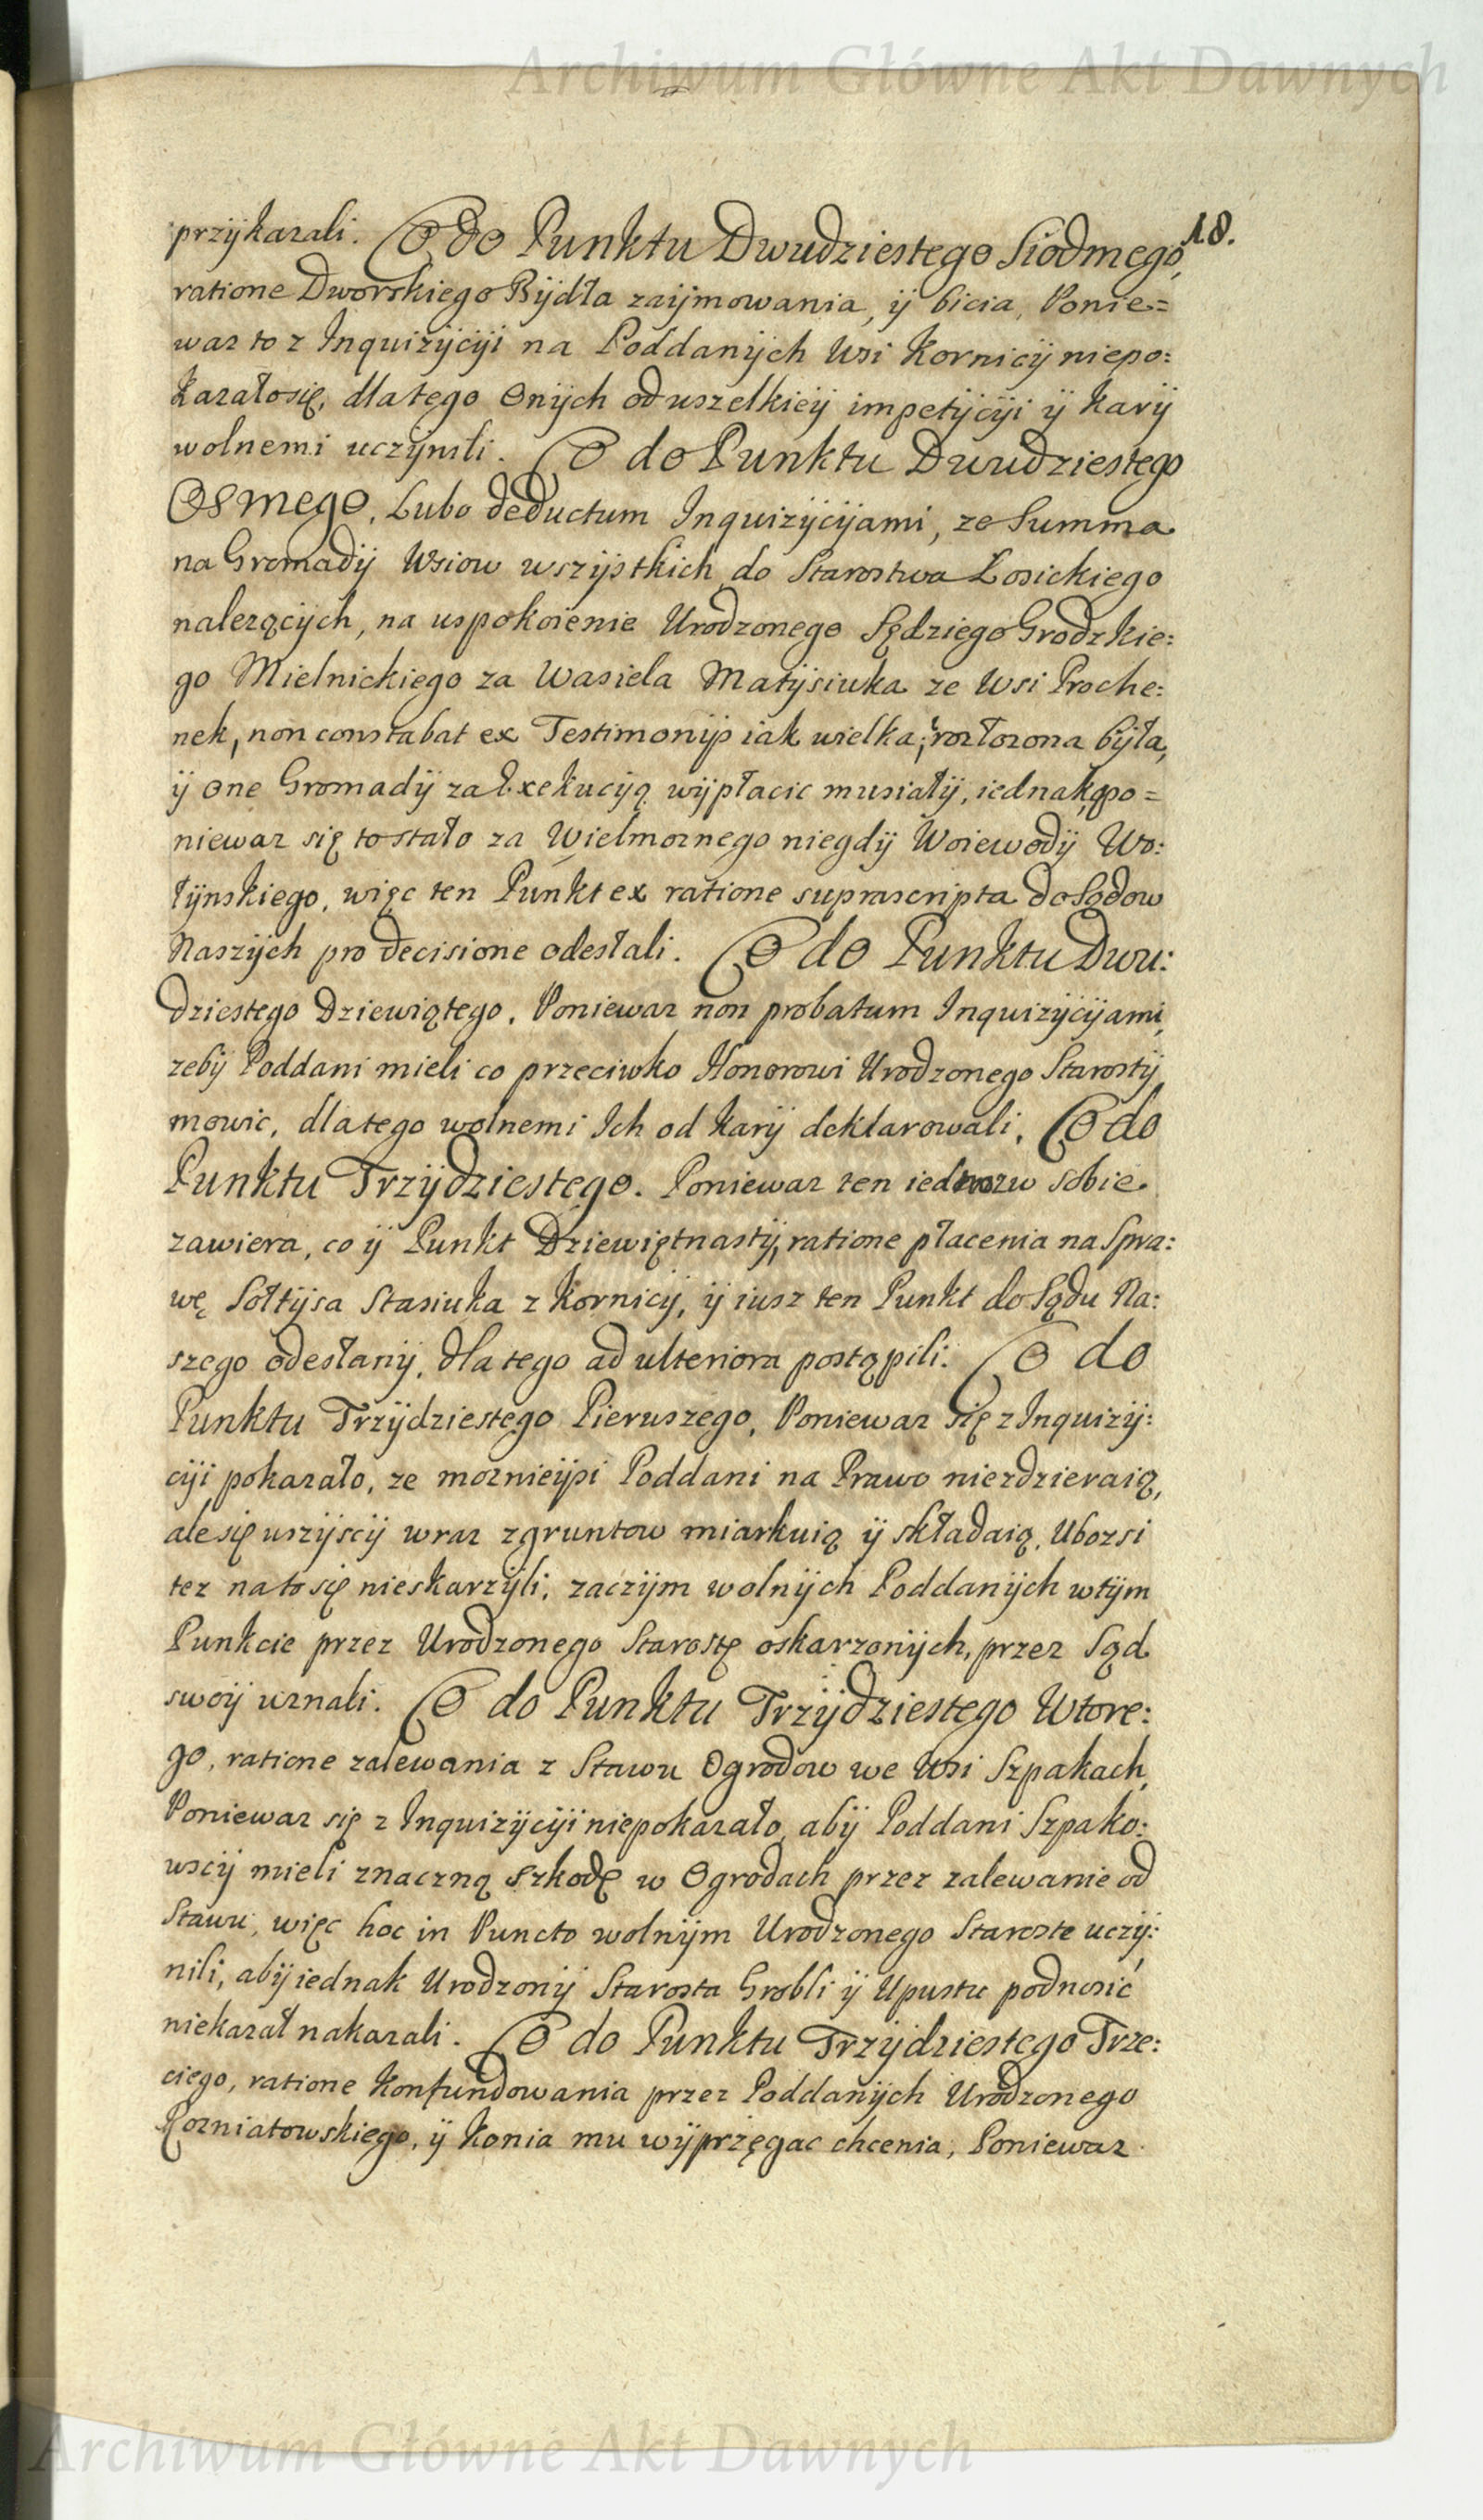 Archiwum Główne Akt Dawnych
18.
przykazali. Co do Punktu Dwudziestego Siodmego,
ratione Dworskiego Bÿdła zaÿmowania, ÿ bicia, Ponie=
waz to z Inquizÿcÿi na Poddanÿch Wsi Kornicÿ niepo:
kazałosię, dlatego onÿch od wszelkieÿ impetÿcÿi ÿ karÿ
wolnemi uczÿnili. Co do Punktu Dwudziestego
Osmego, Lubo deductum Inquizÿcÿami, ze Summa
na Gromadÿ Wsiow wszÿstkich do Starostwa Łosickiego
nalezącÿch, na uspokoienie Urodzonego Sędziego Grodzkie:
go Mielnickiego za Wasiela Matÿsiuka ze Wsi Proche:
nek, non constabat ex Testimonÿs iak wielka rozłozona bÿła,
ÿ one Gromadÿ za Exekucÿą wÿpłacic musiałÿ, iednak po=
niewaz się to stało za Wielmoznego niegdÿ Woiewodÿ Wo:
łÿnskiego, więc ten Punkt ex ratione suprascripta do Sądow
Naszÿch pro decisione odesłali. Co do Punktu Dwu:
dziestego Dziewiątego, Poniewaz non probatum Inquizÿcÿami,
zebÿ Poddani mieli co przeciwko Honorowi Urodzonego Starostÿ
mowic, dlatego wolnemi Ich od karÿ deklarowali, Co do
Punktu Trzÿdziestego. Poniewaz ten w sobie
zawiera, co ÿ Punkt Dziewiętnastÿ, ratione płacenia na Spra:
wę Sołtÿsa Stasiuka z Kornicÿ, ÿ iusz ten Punkt do Sądu Na:
szego odesłanÿ, dla tego ad ulteriora postąpili. Co do
Punktu Trzÿdziestego Pierwszego, Poniewaz się z Inquizÿ:
cÿi pokazało, ze moznieÿsi Poddani na Prawo niezdzieraią,
ale się wszÿscÿ wraz z gruntow miarkuią ÿ składaią, Ubozsi
tez na to się nieskarzÿli, zaczÿm wolnÿch Poddanÿch w tÿm
Punkcie przez Urodzonego Starostę oskarzonÿch, przez Sąd
swoÿ uznali. Co do Punktu Trzÿdziestego Wtore:
go, ratione zalewania z Stawu Ogrodow we Wsi Szpakach,
Poniewaz się z Inquizÿcÿi niepokazało, abÿ Poddani Szpako:
wscÿ mieli znaczną szkodę w Ogrodach przez zalewanie od
Stawu, więc hoc in Puncto wolnÿm Urodzonego Staroste uczÿ:
nili, abÿ iednak Urodzonÿ Starosta Grobli ÿ Upustu podnosić
niekazał nakazali. Co do Punktu Trzÿdziestego Trze:
ciego, ratione konfundowania przez Poddanÿch Urodzonego
Rozniatowskiego, ÿ konia mu wÿprzęgac chcenia, Poniewaz
Archiwum Główne Akt Dawnych